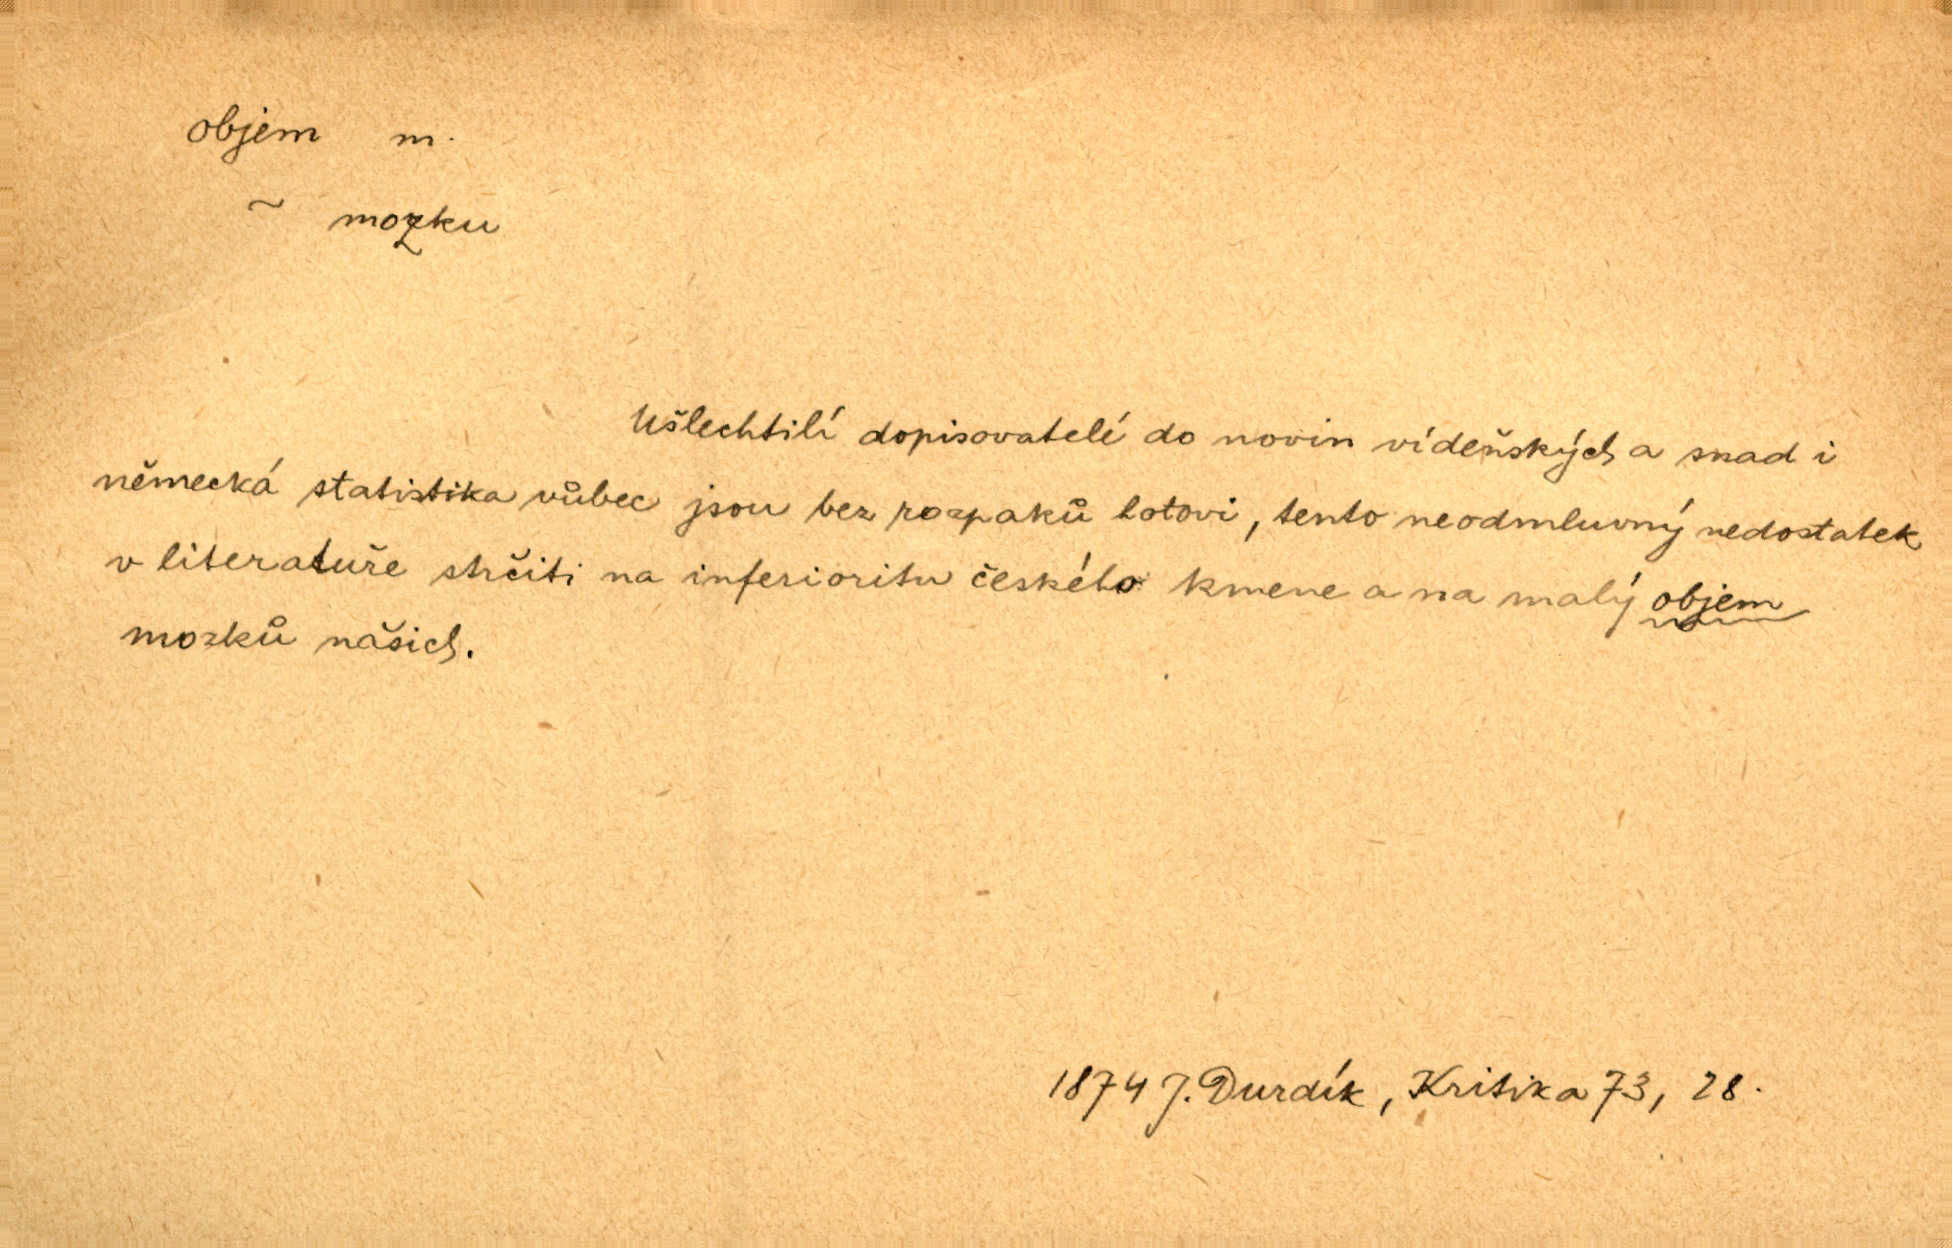 objem m.
~ mozku
Ušlechtilí dopisovatelé do novin vídeňských a snad i
německá statistika vůbec jsou bez rozpaků hotovi, tento neodmluvný nedostatek
v literatuře strčiti na inferioritu českého kmene a na malý objem
mozků našich.
1874 J. Durdík, Kritika 73, 28.